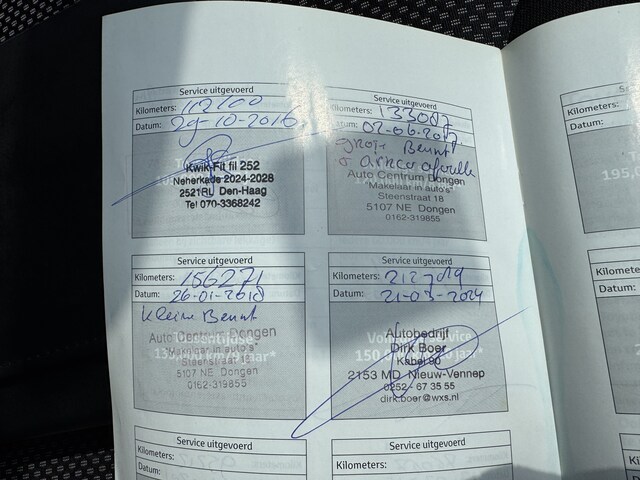 Service uitgevoerd
Kilometers: 112100
Datum: 29-10-2016
Kwik-Fit fil 252
Neherkade 2024-2028
2521RL Den-Haag
Tel 070-3368242
Service uitgevoerd
Kilometers: 133087
Datum: 02-06-2017
grote Beurt
Auto Centrum Dongen
"Makelaar in auto's"
Steenstraat 18
5107 NE Dongen
0162-319855
Service uitgevoerd
Kilometers: 156271
Datum: 26-01-2018
kleine Beurt
Auto Centrum Dongen
"Makelaar in auto's"
Steenstraat 18
5107 NE Dongen
0162-319855
Service uitgevoerd
Kilometers: 212719
Datum: 21-03-2024
Autobedrijf
Dirk Boer
Kabel 90
2153 MD Nieuw-Vennep
0252 - 67 35 55
dirk.boer@wxs.nl
Service uitgevoerd
Kilometers:
Datum:
Service uitgevoerd
Kilometers:
Kilometers:
Datum:
195,0
Kilometers:
Datum: